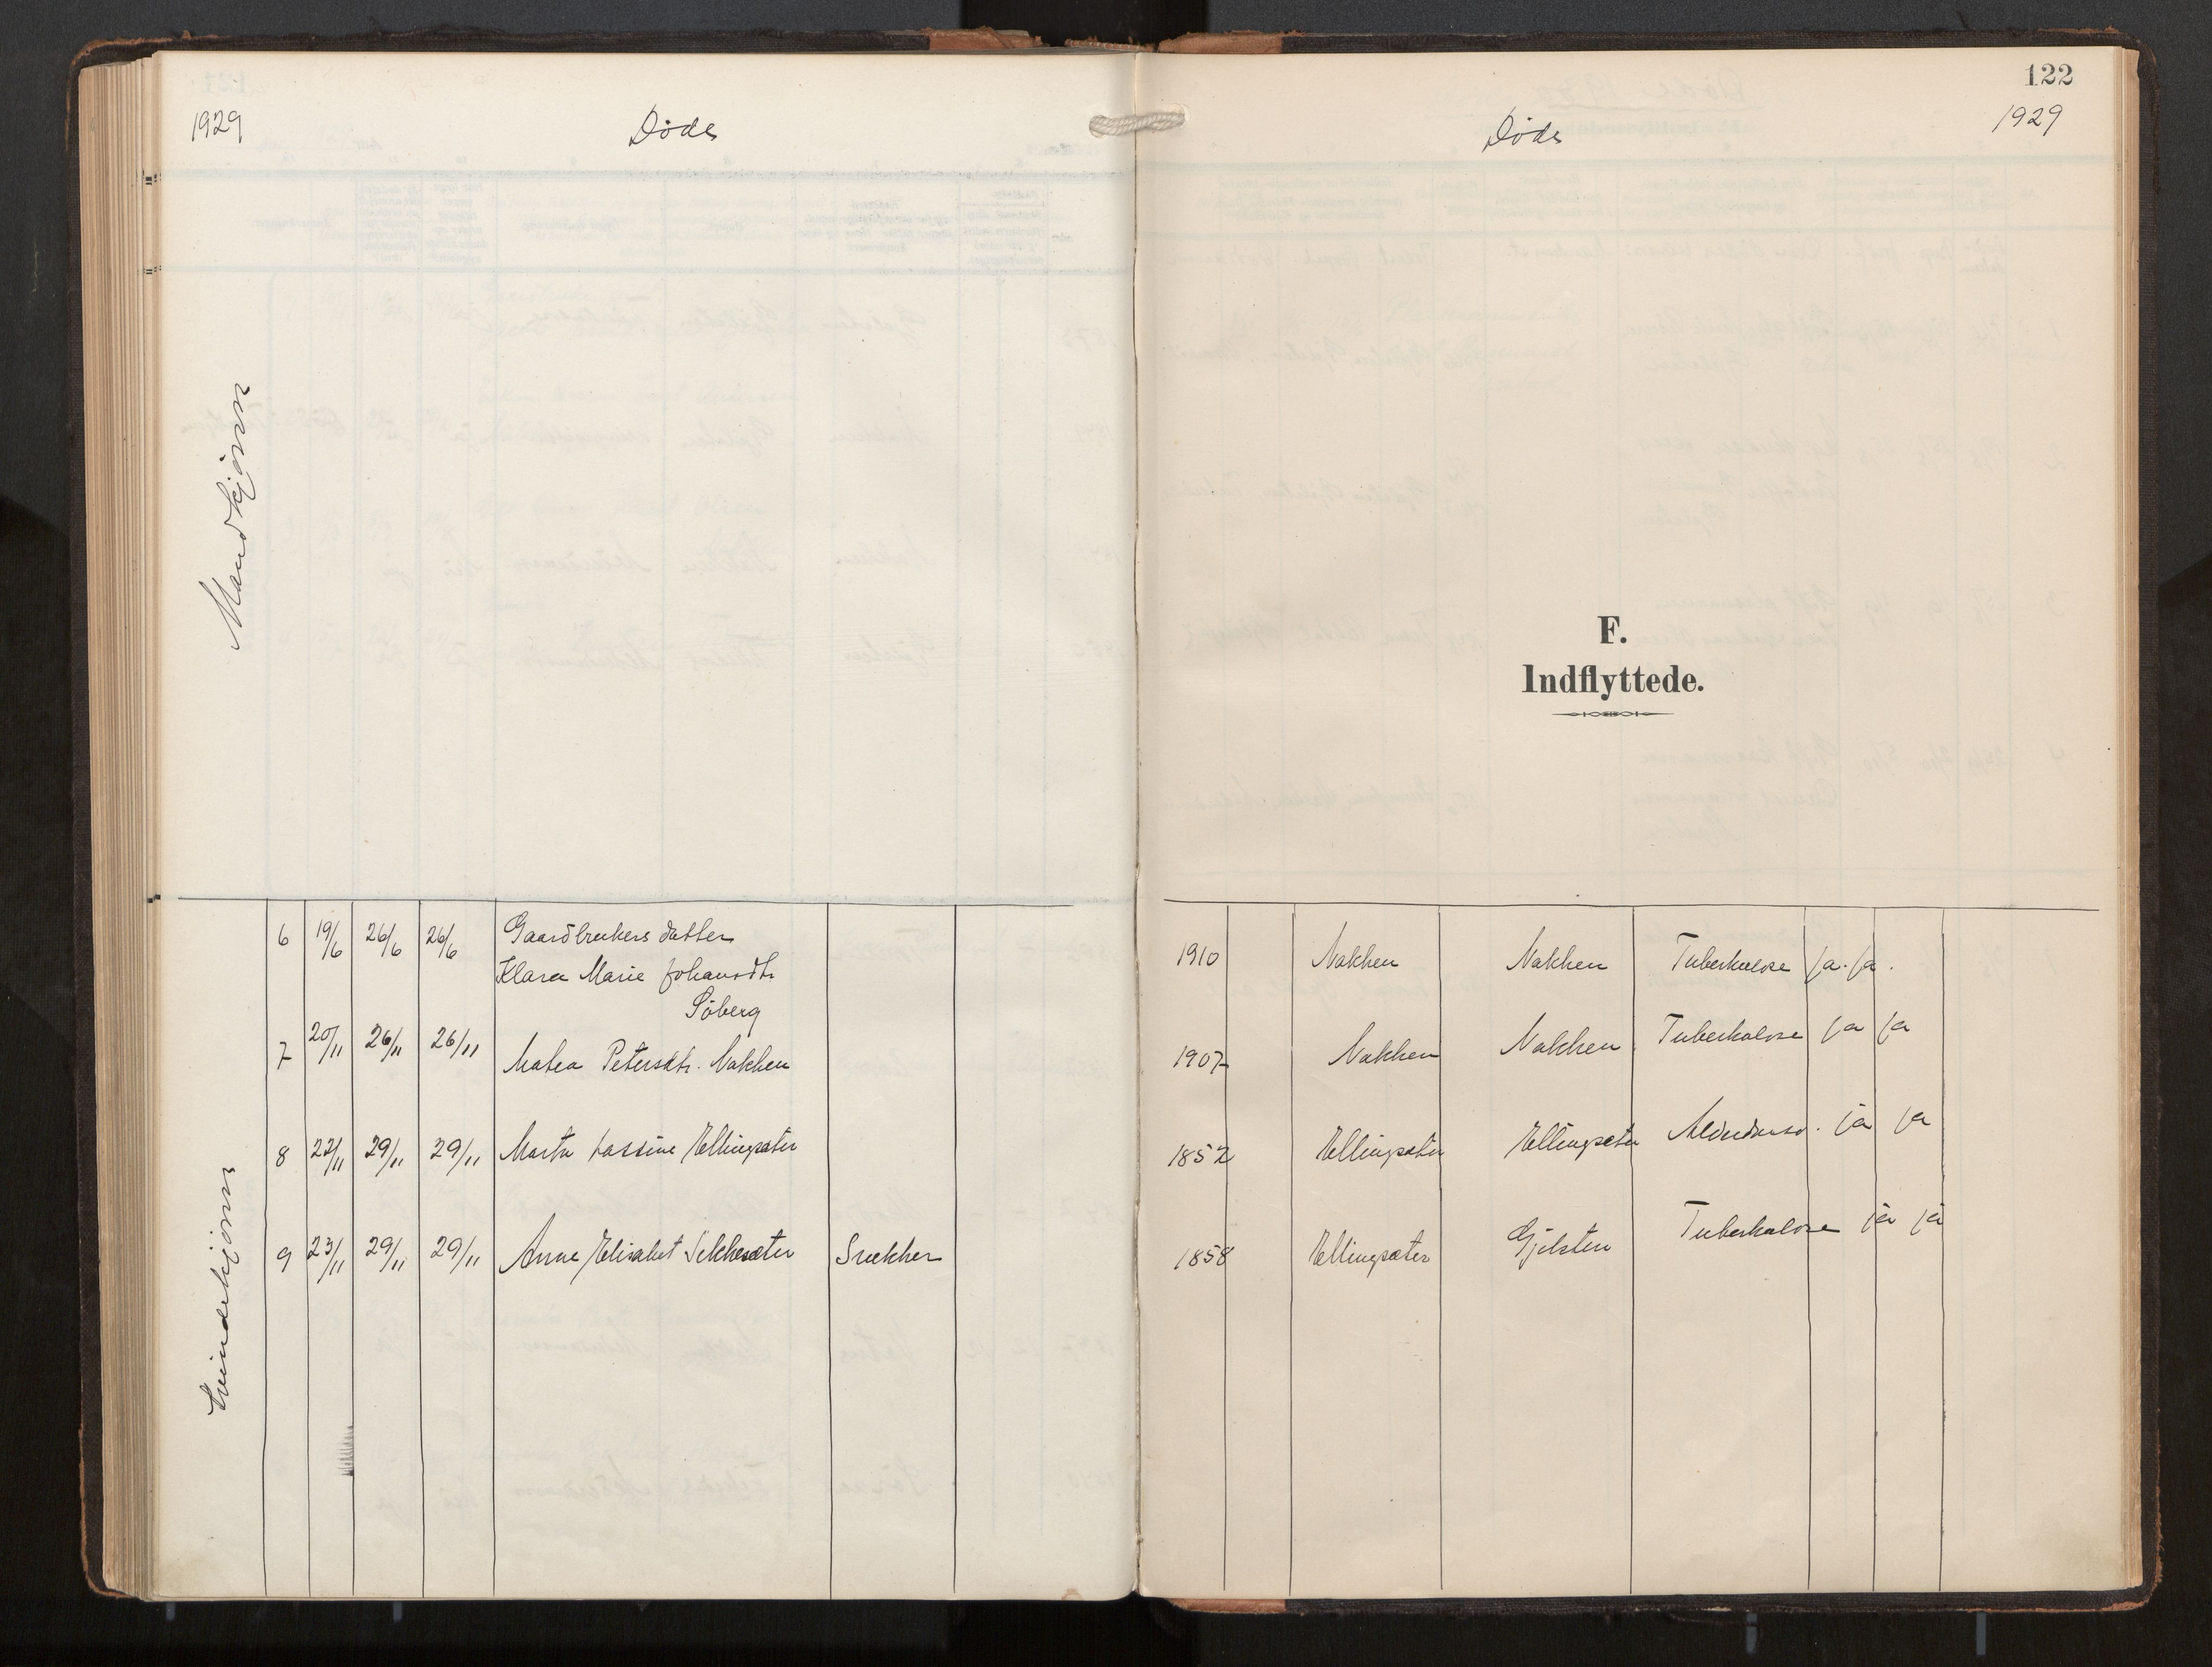 1929 Døde
Mandkjønn
6 19/6 26/6 26/6 Gaardbrukers datter
Klara Marie Johansdtr.
Söberg
7 20/11 26/11 26/11 Matea Petersdtr. Nakken
8 22/11 29/11 29/11 Marta Lassine Ellingsæter
9 23/11 29/11 29/11 Anne Elisabet Sekkesæter Snekker
Kvindekjønn
122
Døde 1929
F.
Indflyttede.
1910 Nakken Nakken Tuberkulose ja. ja.
1907 Nakken Nakken Tuberkulose ja ja
1852 Ellingsæter Ellingsæter Alderdomsv. ja ja
1858 Ellingsæter Gjelsten Tuberkulose ja ja